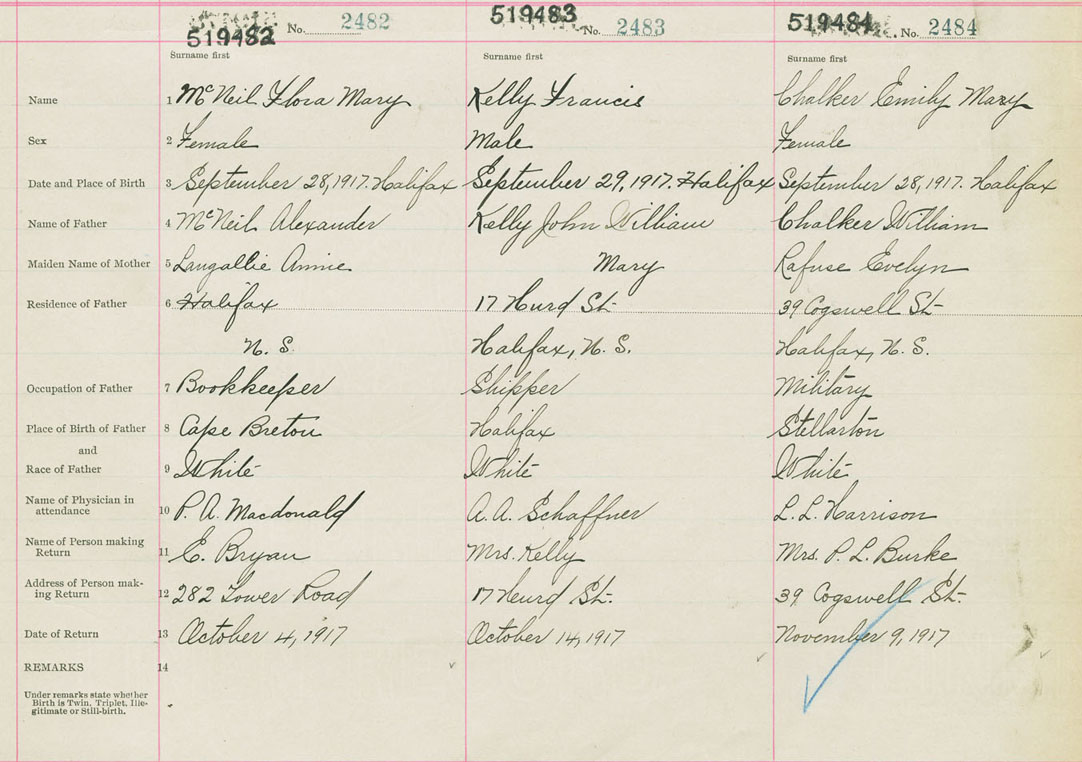 519482 No. 2482 519483 No. 2483 519484 No. 2484
Surname first Surname first Surname first
Name 1 McNeil Flora Mary Kelly Francis Chalker Emily Mary
Sex 2 Female Male Female
Date and Place of Birth 3 September 28, 1917. Halifax September 29, 1917. Halifax September 28, 1917. Halifax
Name of Father 4 McNeil Alexander Kelly John William Chalker William
Maiden Name of Mother 5 Langallie Annie Mary Rafuse Evelyn
Residence of Father 6 Halifax 17 Hurd St. 39 Cogswell St.
N. S. Halifax, N. S. Halifax, N. S.
Occupation of Father 7 Bookkeeper Shipper Military
Place of Birth of Father 8 Cape Breton Halifax Stellarton
and
Race of Father 9 White White White
Name of Physician in
attendance 10 P. A. Macdonald A. A. Schaffner L. L. Harrison
Name of Person making
Return 11 E. Bryan Mrs. Kelly Mrs. P. L. Burke
Address of Person mak-
ing Return 12 282 Tower Road 17 Hurd St. 39 Cogswell St.
Date of Return 13 October 4, 1917 October 14, 1917 November 9, 1917
REMARKS 14
Under remarks state whether
Birth is Twin, Triplet, Ille-
gitimate or Still-birth.